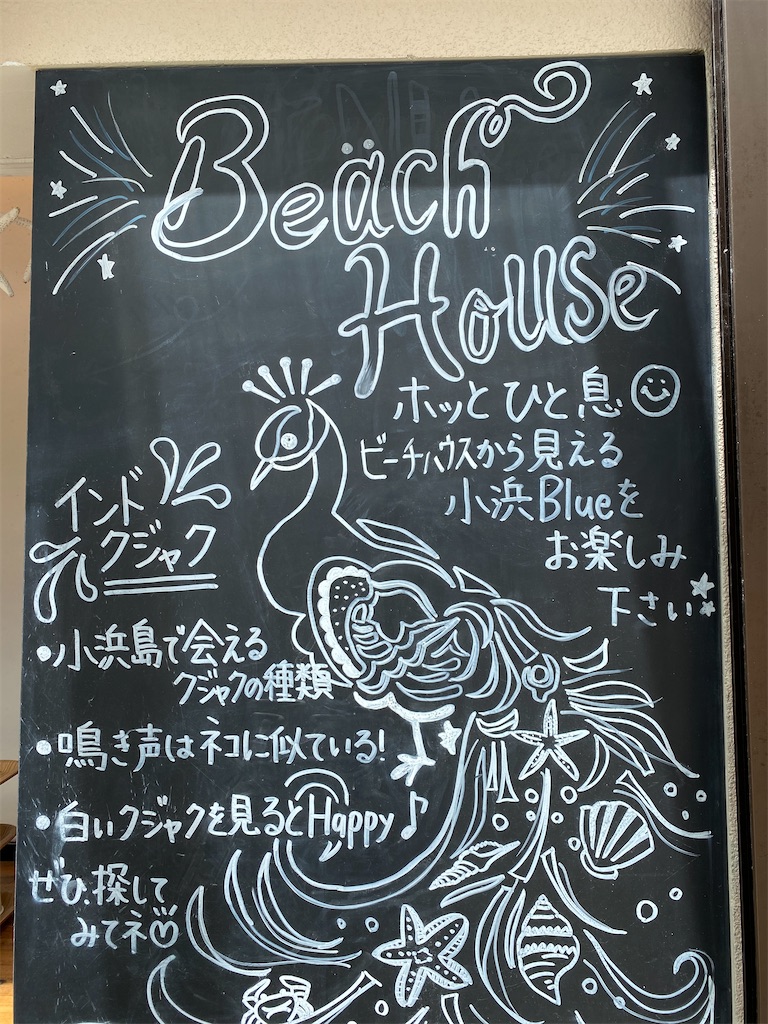 Beäch
House
ホッとひと息
ビーチハウスから見える
小浜Blueを
お楽しみ
下さい
インド
クジャク
・小浜島で会える
クジャクの種類
・鳴き声はネコに似ている!
・白いクジャクを見るとHappy♪
ぜひ、探して
みてネ